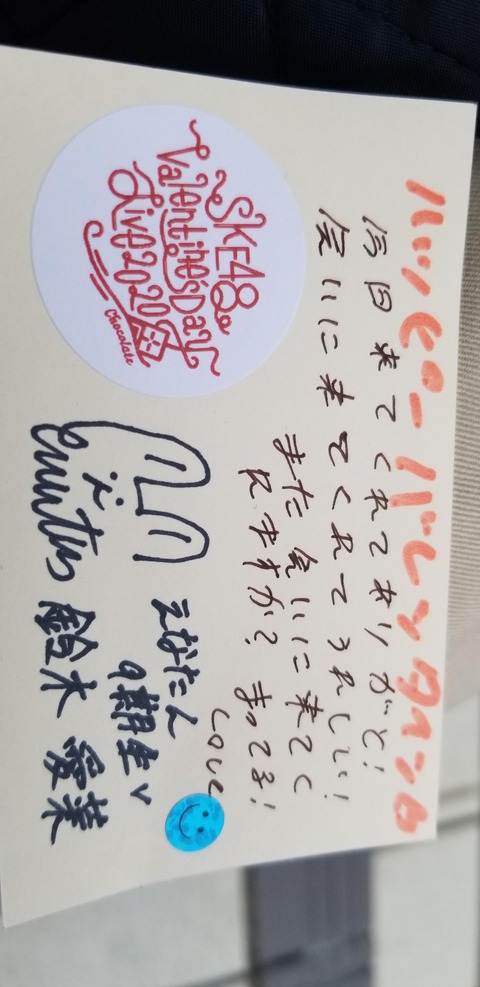 ハッピーバレンタイン
今日来てくれてありがと!
会いに来てくれてうれしい!
また会いに来てく
れますか? まってる!
Love
SKE48
Valentine's Day
Live 2020
Chocolate
えなたん
9期生
鈴木 愛菜